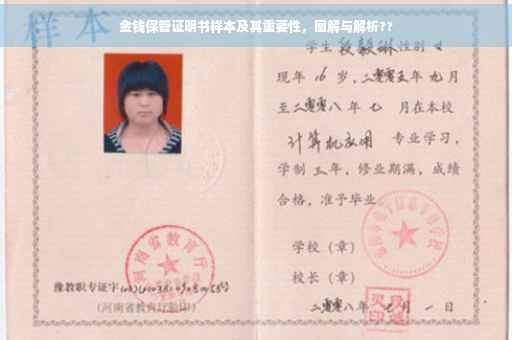 金钱保管证明书样本及其重要性，图解与解析??
样本
学生 段毅琳 性别 女
现年 16 岁，二零零五年 九 月
至二零零八年 七 月在本校
计算机应用 专业学习，
学制 三 年，修业期满，成绩
合格，准予毕业
学校（章）
校长（章）
二零零八年 月 一 日
河南省教育厅
豫教职专证字
（河南省教育厅验印）